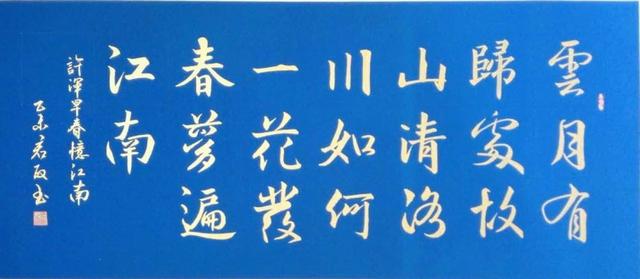 雲月有
歸處故
山清洛
川如何
一花發
春夢遍
江南
許渾早春憶江南
乙未